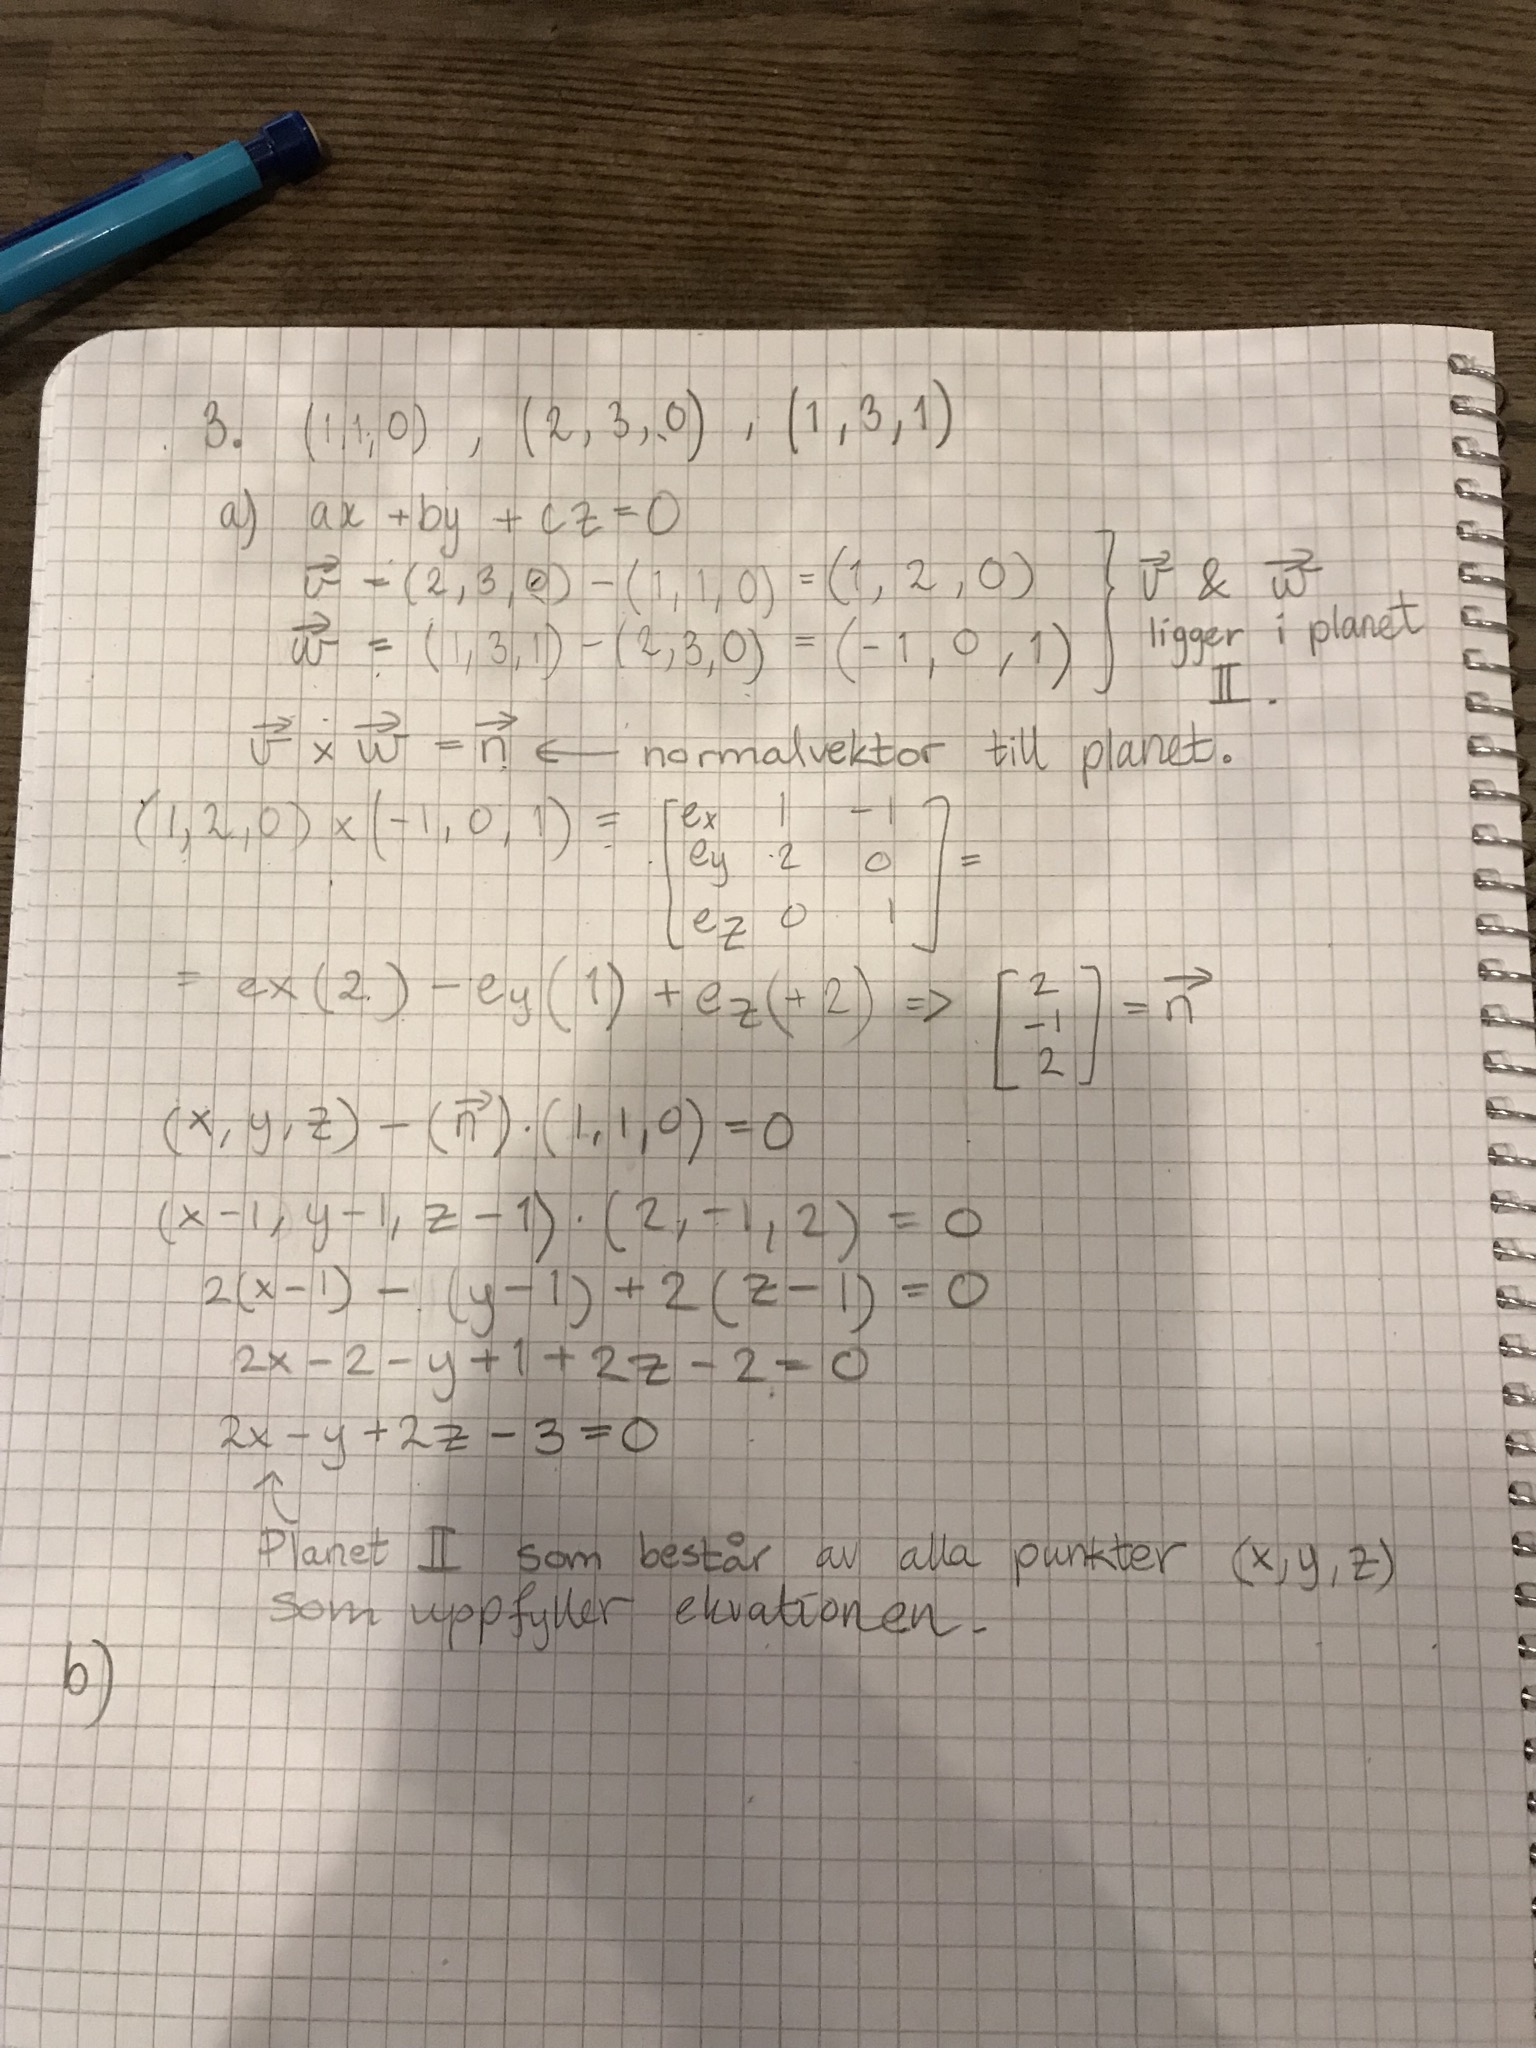 3. (1,1,0) , (2,3,0) , (1,3,1)
a) ax + by + cz = 0
v⃗ = (2,3,0) - (1,1,0) = (1,2,0) } v⃗ & w⃗
w⃗ = (1,3,1) - (2,3,0) = (-1,0,1) ligger i planet
II.
v⃗ × w⃗ = n⃗ ← normalvektor till planet.
(1,2,0) × (-1,0,1) = [ex 1 -1
ey 2 0
ez 0 1] =
= ex(2) - ey(1) + ez(+2) => [2
-1
2] = n⃗
(x,y,z) - (n⃗)·(1,1,0) = 0
(x-1, y-1, z-1)·(2,-1,2) = 0
2(x-1) - (y-1) + 2(z-1) = 0
2x - 2 - y + 1 + 2z - 2 = 0
2x - y + 2z - 3 = 0
↑
Planet II som består av alla punkter (x,y,z)
som uppfyller ekvationen.
b)